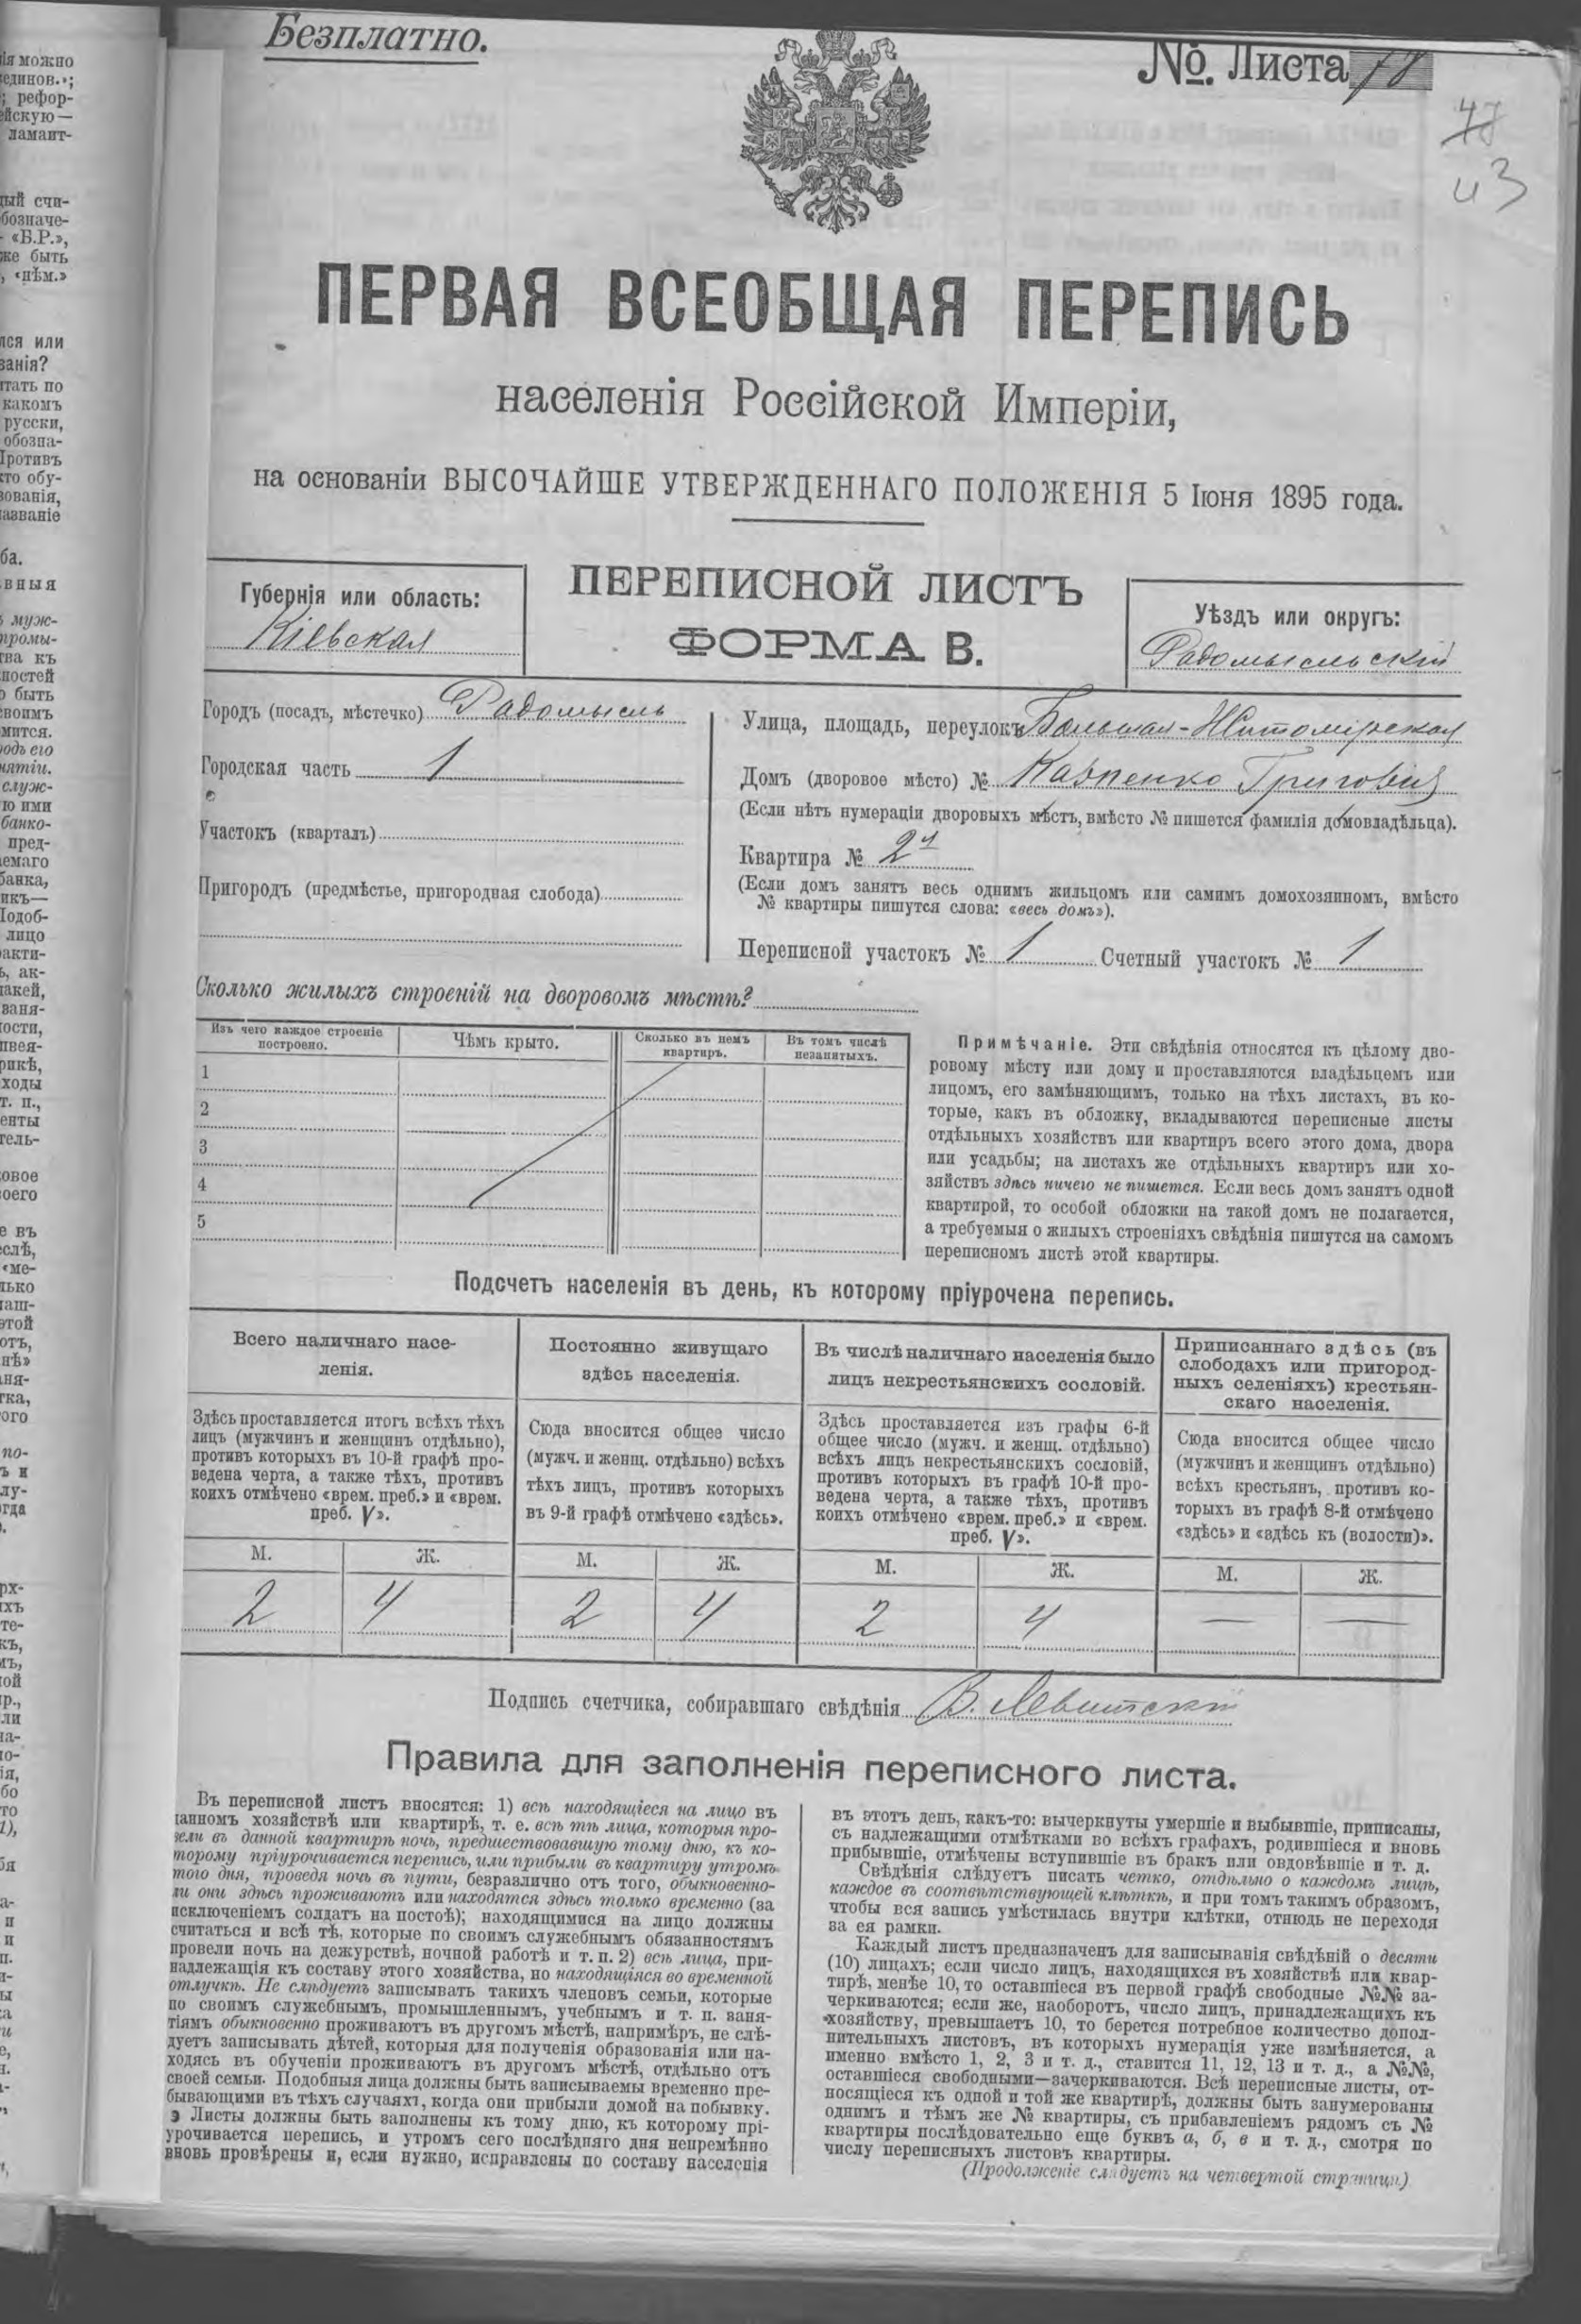 Безплатно.
№. Листа 78
43
ПЕРВАЯ ВСЕОБЩАЯ ПЕРЕПИСЬ
населенія Россійской Имперіи,
на основаніи ВЫСОЧАЙШЕ УТВЕРЖДЕННАГО ПОЛОЖЕНІЯ 5 Іюня 1895 года.
Губернія или область:
Кіевская
ПЕРЕПИСНОЙ ЛИСТЪ
ФОРМА В.
Уѣздъ или округъ:
Радомысльскій
Городъ (посадъ, мѣстечко) Радомысль
Городская часть 1
Участокъ (кварталъ)
Пригородъ (предмѣстье, пригородная слобода)
Улица, площадь, переулокъ Большая-Житомірская
Домъ (дворовое мѣсто) № Карпенко
(Если нѣтъ нумераціи дворовыхъ мѣстъ, вмѣсто № пишется фамилія домовладѣльца).
Квартира № 2
(Если домъ занятъ весь однимъ жильцомъ или самимъ домохозяиномъ, вмѣсто
№ квартиры пишутся слова: «весь домъ»).
Переписной участокъ № 1 Счетный участокъ № 1
Сколько жилыхъ строеній на дворовомъ мѣстѣ?
Изъ чего каждое строеніе
построено.
Чѣмъ крыто.
Сколько въ немъ
квартиръ.
Въ томъ числѣ
незанятыхъ.
1
2
3
4
5
Примѣчаніе. Эти свѣдѣнія относятся къ цѣлому дво-
ровому мѣсту или дому и проставляются владѣльцемъ или
лицомъ, его замѣняющимъ, только на тѣхъ листахъ, въ ко-
торые, какъ въ обложку, вкладываются переписные листы
отдѣльныхъ хозяйствъ или квартиръ всего этого дома, двора
или усадьбы; на листахъ же отдѣльныхъ квартиръ или хо-
зяйствъ здѣсь ничего не пишется. Если весь домъ занятъ одной
квартирой, то особой обложки на такой домъ не полагается,
а требуемыя о жилыхъ строеніяхъ свѣдѣнія пишутся на самомъ
переписномъ листѣ этой квартиры.
Подсчетъ населенія въ день, къ которому пріурочена перепись.
Всего наличнаго насе-
ленія.
Здѣсь проставляется итогъ всѣхъ тѣхъ
лицъ (мужчинъ и женщинъ отдѣльно),
противъ которыхъ въ 10-й графѣ про-
ведена черта, а также тѣхъ, противъ
коихъ отмѣчено «врем. преб.» и «врем.
преб. V».
Постоянно живущаго
здѣсь населенія.
Сюда вносится общее число
(мужч. и женщ. отдѣльно) всѣхъ
тѣхъ лицъ, противъ которыхъ
въ 9-й графѣ отмѣчено «здѣсь».
Въ числѣ наличнаго населенія было
лицъ некрестьянскихъ сословій.
Здѣсь проставляется изъ графы 6-й
общее число (мужч. и женщ. отдѣльно)
всѣхъ лицъ некрестьянскихъ сословій,
противъ которыхъ въ графѣ 10-й про-
ведена черта, а также тѣхъ, противъ
коихъ отмѣчено «врем. преб.» и «врем.
преб. V».
Приписаннаго здѣсь (въ
слободахъ или пригород-
ныхъ селеніяхъ) крестьян-
скаго населенія.
Сюда вносится общее число
(мужчинъ и женщинъ отдѣльно)
всѣхъ крестьянъ, противъ ко-
торыхъ въ графѣ 8-й отмѣчено
«здѣсь» и «здѣсь къ (волости)».
М. Ж. М. Ж. М. Ж. М. Ж.
2 4 2 4 2 4 — —
Подпись счетчика, собиравшаго свѣдѣнія В. Левитскій
Правила для заполненія переписного листа.
Въ переписной листъ вносятся: 1) всѣ находящіеся на лицо въ
данномъ хозяйствѣ или квартирѣ, т. е. всѣ тѣ лица, которыя про-
вели въ данной квартирѣ ночь, предшествовавшую тому дню, къ ко-
торому пріурочивается перепись, или прибыли въ квартиру утромъ
того дня, проведя ночь въ пути, безразлично отъ того, обыкновенно-
ли они здѣсь проживаютъ или находятся здѣсь только временно (за
исключеніемъ солдатъ на постоѣ); находящимися на лицо должны
считаться и всѣ тѣ, которые по своимъ служебнымъ обязанностямъ
провели ночь на дежурствѣ, ночной работѣ и т. п. 2) всѣ лица, при-
надлежащія къ составу этого хозяйства, но находящіяся во временной
отлучкѣ. Не слѣдуетъ записывать такихъ членовъ семьи, которые
по своимъ служебнымъ, промышленнымъ, учебнымъ и т. п. заня-
тіямъ обыкновенно проживаютъ въ другомъ мѣстѣ, напримѣръ, не слѣ-
дуетъ записывать дѣтей, которыя для полученія образованія или на-
ходясь въ обученіи проживаютъ въ другомъ мѣстѣ, отдѣльно отъ
своей семьи. Подобныя лица должны быть записываемы временно пре-
бывающими въ тѣхъ случаяхъ, когда они прибыли домой на побывку.
Листы должны быть заполнены къ тому дню, къ которому прі-
урочивается перепись, и утромъ сего послѣдняго дня непремѣнно
вновь провѣрены и, если нужно, исправлены по составу населенія
въ этотъ день, какъ-то: вычеркнуты умершіе и выбывшіе, приписаны,
съ надлежащими отмѣтками во всѣхъ графахъ, родившіеся и вновь
прибывшіе, отмѣчены вступившіе въ бракъ или овдовѣвшіе и т. д.
Свѣдѣнія слѣдуетъ писать четко, отдѣльно о каждомъ лицѣ,
каждое въ соотвѣтствующей клѣткѣ, и при томъ такимъ образомъ,
чтобы вся запись умѣстилась внутри клѣтки, отнюдь не переходя
за ея рамки.
Каждый листъ предназначенъ для записыванія свѣдѣній о десяти
(10) лицахъ; если число лицъ, находящихся въ хозяйствѣ или квар-
тирѣ, менѣе 10, то оставшіеся въ первой графѣ свободные №№ за-
черкиваются; если же, наоборотъ, число лицъ, принадлежащихъ къ
хозяйству, превышаетъ 10, то берется потребное количество допол-
нительныхъ листовъ, въ которыхъ нумерація уже измѣняется, а
именно вмѣсто 1, 2, 3 и т. д., ставится 11, 12, 13 и т. д., а №№,
оставшіеся свободными—зачеркиваются. Всѣ переписные листы, от-
носящіеся къ одной и той же квартирѣ, должны быть занумерованы
однимъ и тѣмъ же № квартиры, съ прибавленіемъ рядомъ съ №
квартиры послѣдовательно еще буквъ а, б, в и т. д., смотря по
числу переписныхъ листовъ квартиры.
(Продолженіе слѣдуетъ на четвертой страницѣ)